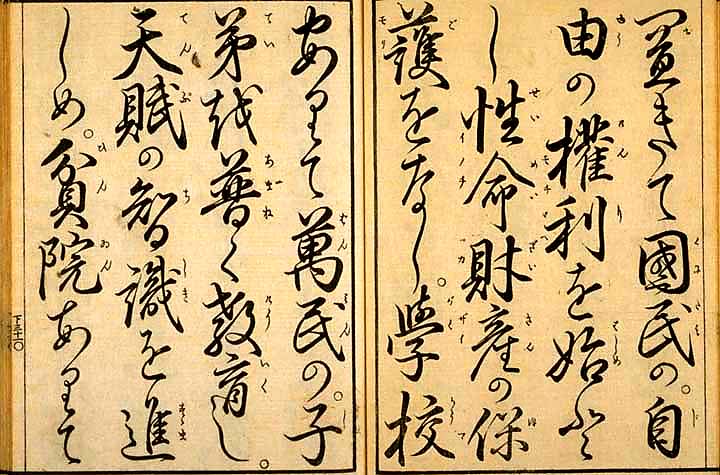 置きたて國民の。自
由の權利を始と
し性命財産の保
護をなし。學校
ありて萬民の。子
弟を普く教育し。
天賦の智識を進
しめ。貧院ありて